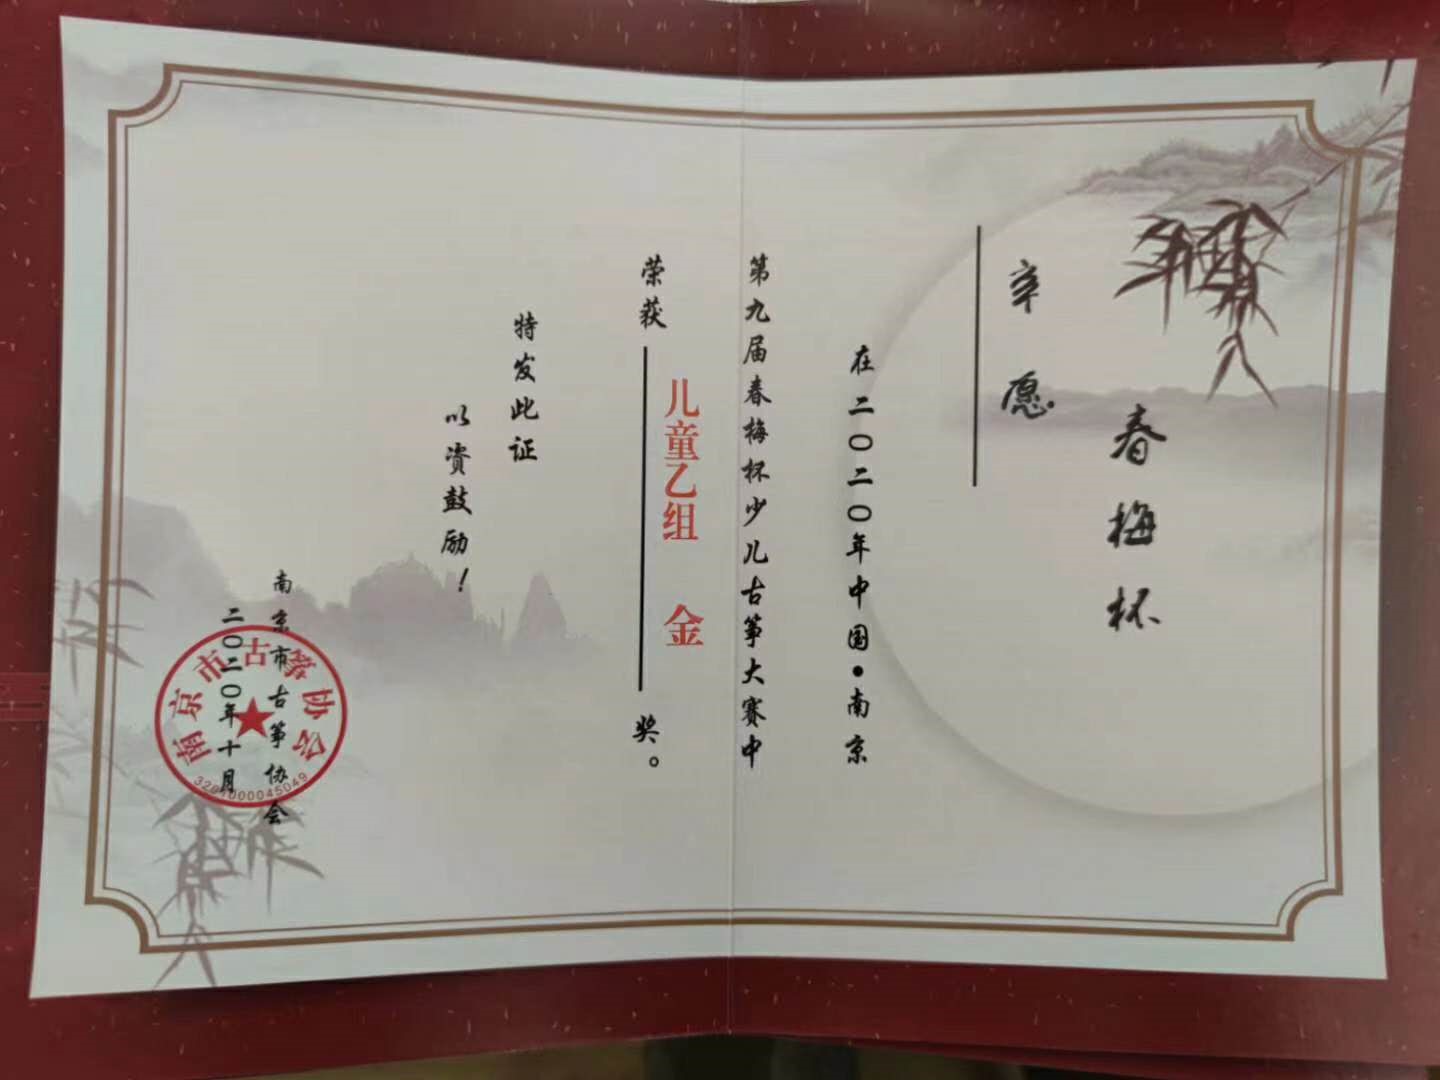 春梅杯
辛愿
在二〇二〇年中国•南京
第九届春梅杯少儿古筝大赛中
荣获 儿童乙组 金 奖。
特发此证
以资鼓励！
南京市古筝协会
二〇二〇年十月
南京市古筝协会